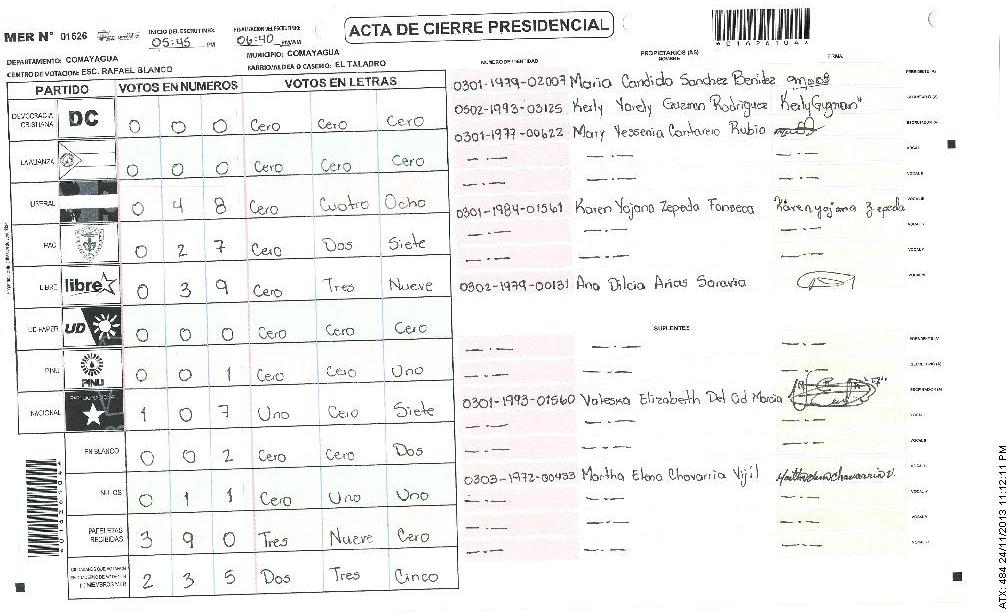 ACTA DE CIERRE PRESIDENCIAL
MER N° 01526
INICIO DEL ESCRUTINIO:
05:45 PM
FINALIZACION DEL ESCRUTINIO:
06:40 PM/AM
DEPARTAMENTO: COMAYAGUA
MUNICIPIO: COMAYAGUA
CENTRO DE VOTACION: ESC. RAFAEL BLANCO
BARRIO/ALDEA O CASERIO: EL TALADRO
PARTIDO VOTOS EN NUMEROS VOTOS EN LETRAS
DEMOCRACIA CRISTIANA DC 0 0 0 Cero Cero Cero
LA ALIANZA 0 0 0 Cero Cero Cero
LIBERAL 0 4 8 Cero Cuatro Ocho
PAC 0 2 7 Cero Dos Siete
LIBRE libre 0 3 9 Cero Tres Nueve
UD-FAPER UD 0 0 0 Cero Cero Cero
PINU PINU 0 0 1 Cero Cero Uno
NACIONAL 1 0 7 Uno Cero Siete
EN BLANCO 0 0 2 Cero Cero Dos
NULOS 0 1 1 Cero Uno Uno
PAPELETAS RECIBIDAS 3 9 0 Tres Nueve Cero
2 3 5 Dos Tres Cinco
NUMERO DE IDENTIDAD PROPIETARIOS (AS) NOMBRE FIRMA
0301-1979-02007 Maria Candida Sanchez Benitez PRESIDENTE (A)
0502-1993-03125 Kerly Yorely Guzman Rodriguez Kerly Guzman SECRETARIO (A)
0301-1977-00622 Mary Yessenia Cantarero Rubio ESCRUTADOR (A)
— · — — · — — · — VOCAL I
— · — — · — — · — VOCAL II
0301-1984-01561 Karen Yojana Zepeda Fonseca Karen yojana Zepeda VOCAL III
— · — — · — — · — VOCAL IV
— · — — · — — · — VOCAL V
0302-1979-00131 Ana Dilcia Arias Saravia VOCAL VI
SUPLENTES
— · — — · — — · — PRESIDENTE (A)
— · — — · — SECRETARIO (A)
0301-1993-01560 Valeska Elizabeth Del Cid Murcia ESCRUTADOR (A)
— · — — · — — · — VOCAL I
— · — — · — — · — VOCAL II
0303-1972-00433 Martha Elena Chavarria Vijil Martha Elena Chavarria V. VOCAL III
— · — — · — — · — VOCAL IV
— · — — · — — · — VOCAL V
— · — — · — — · — VOCAL VI
ATX: 484 24/11/2013 11:12:11 PM